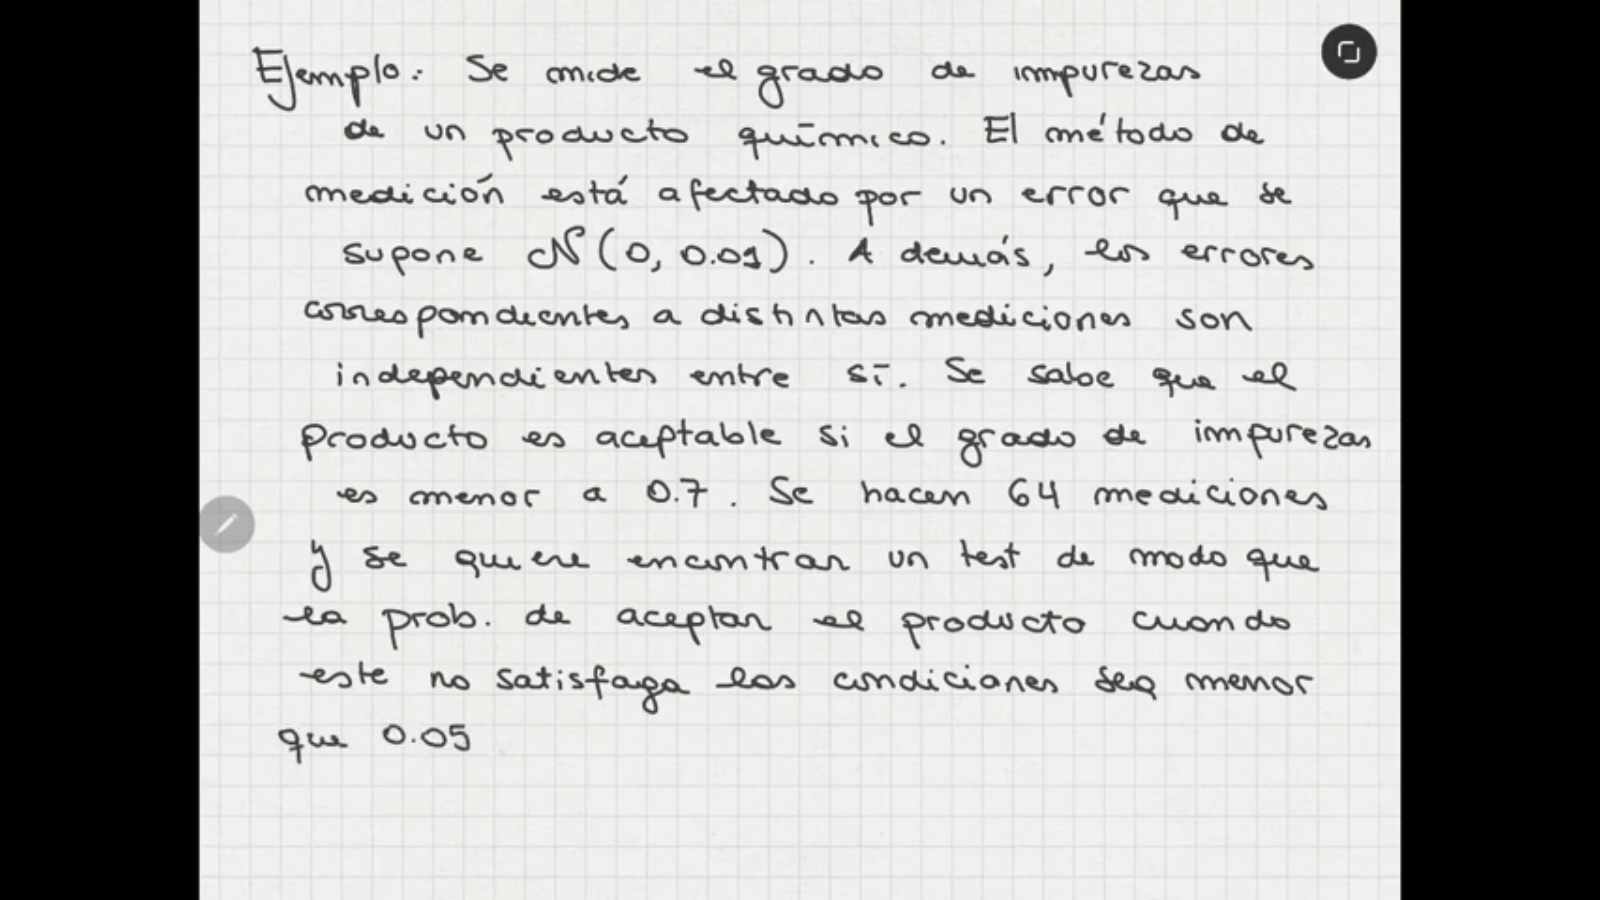 Ejemplo: Se mide el grado de impurezas
de un producto químico. El método de
medición está afectado por un error que se
supone N(0, 0.01). Además, los errores
correspondientes a distintas mediciones son
independientes entre sí. Se sabe que el
producto es aceptable si el grado de impurezas
es menor a 0.7. Se hacen 64 mediciones
y se quiere encontrar un test de modo que
la prob. de aceptar el producto cuando
este no satisfaga las condiciones sea menor
que 0.05